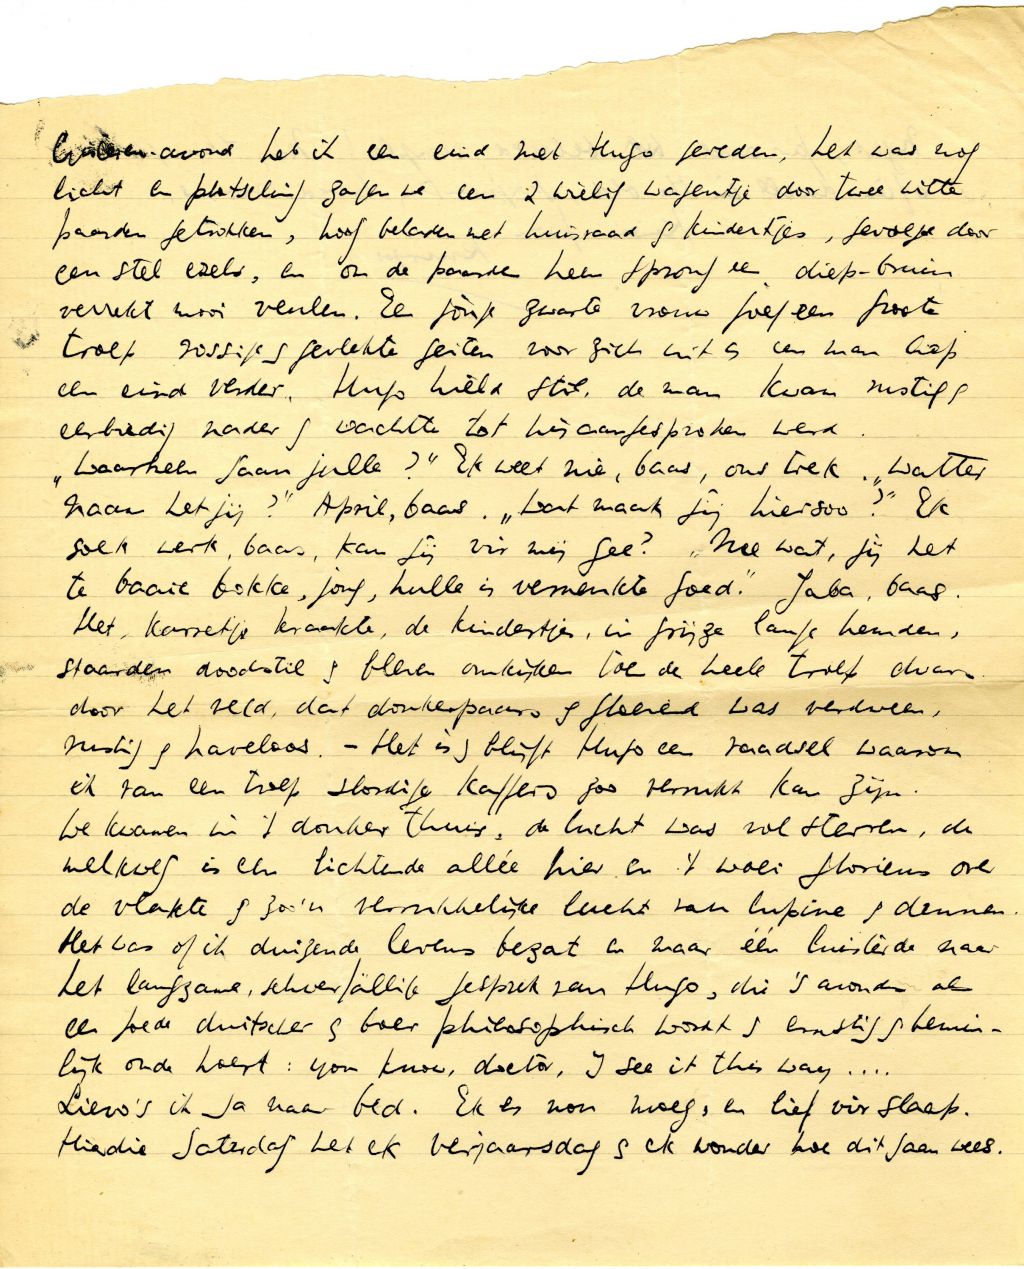 Gisteren avond heb ik een eind met Hugo gereden, het was nog
licht en plotseling zagen we een 2 wielig wagentje door twee witte
paarden getrokken, hoog beladen met huisraad & kindertjes, gevolgd door
een stel ezels, en om de paarden heen sprong een diep-bruin
verrekt mooi veulen. Een jonge zwarte vrouw joeg een groote
troep rossige & gevlekte geiten voor zich uit & een man liep
een eind verder. Hugo hield stil, de man kwam rustig &
eerbiedig nader & wachtte tot hij aangesproken werd.
„Waarheen gaan julle?" Ek weet nie, baas, ons trek. „Watter
naam het jij?" April, baas. „Wat maak jij hiersoo?" Ek
soek werk, baas, kan jij vir mij gee? „Nee wat, jij het
te baaie bokke, jong, hulle is verneukte goed." Jaba, baas.
Het karretje kraakte, de kindertjes, in grijze lange hemden,
staarden doodstil & bleven omkijken toen de heele troep dwars
door het veld, dat donkerpaars & gloeiend was verdween,
rustig & haveloos. – Het is & blijft Hugo een raadsel waarom
ik van een troep slordige kaffers zoo verrukt kan zijn.
We kwamen in 't donker thuis, de lucht was vol sterren, de
melkweg is een lichtende allée hier en 't woei glorieus over
de vlakte & zoo'n verrukkelijke lucht van lupine & dennen.
Het was of ik duizende levens bezat en maar één luisterde naar
het langzame, schwerfällige gesprek van Hugo, die 's avonds als
een goede duitscher & boer philosophisch wordt & ernstig & bemin-
lijk onde hoest: you know, doctor, I see it this way ....
Lievo's ik ga naar bed. Ek is nou moeg, en lief vir slaap.
Hierdie Saterdag het ek verjaarsdag & ek wonder hoe dit gaan wees.